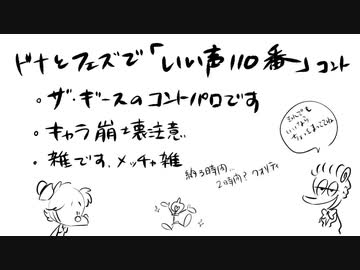 ドナとフェズで「いい声110番」コント
・ザ・ギースのコントパロです
・キャラ崩壊注意
・雑です、メッチャ雑
約3時間…
2時間?クオリティ